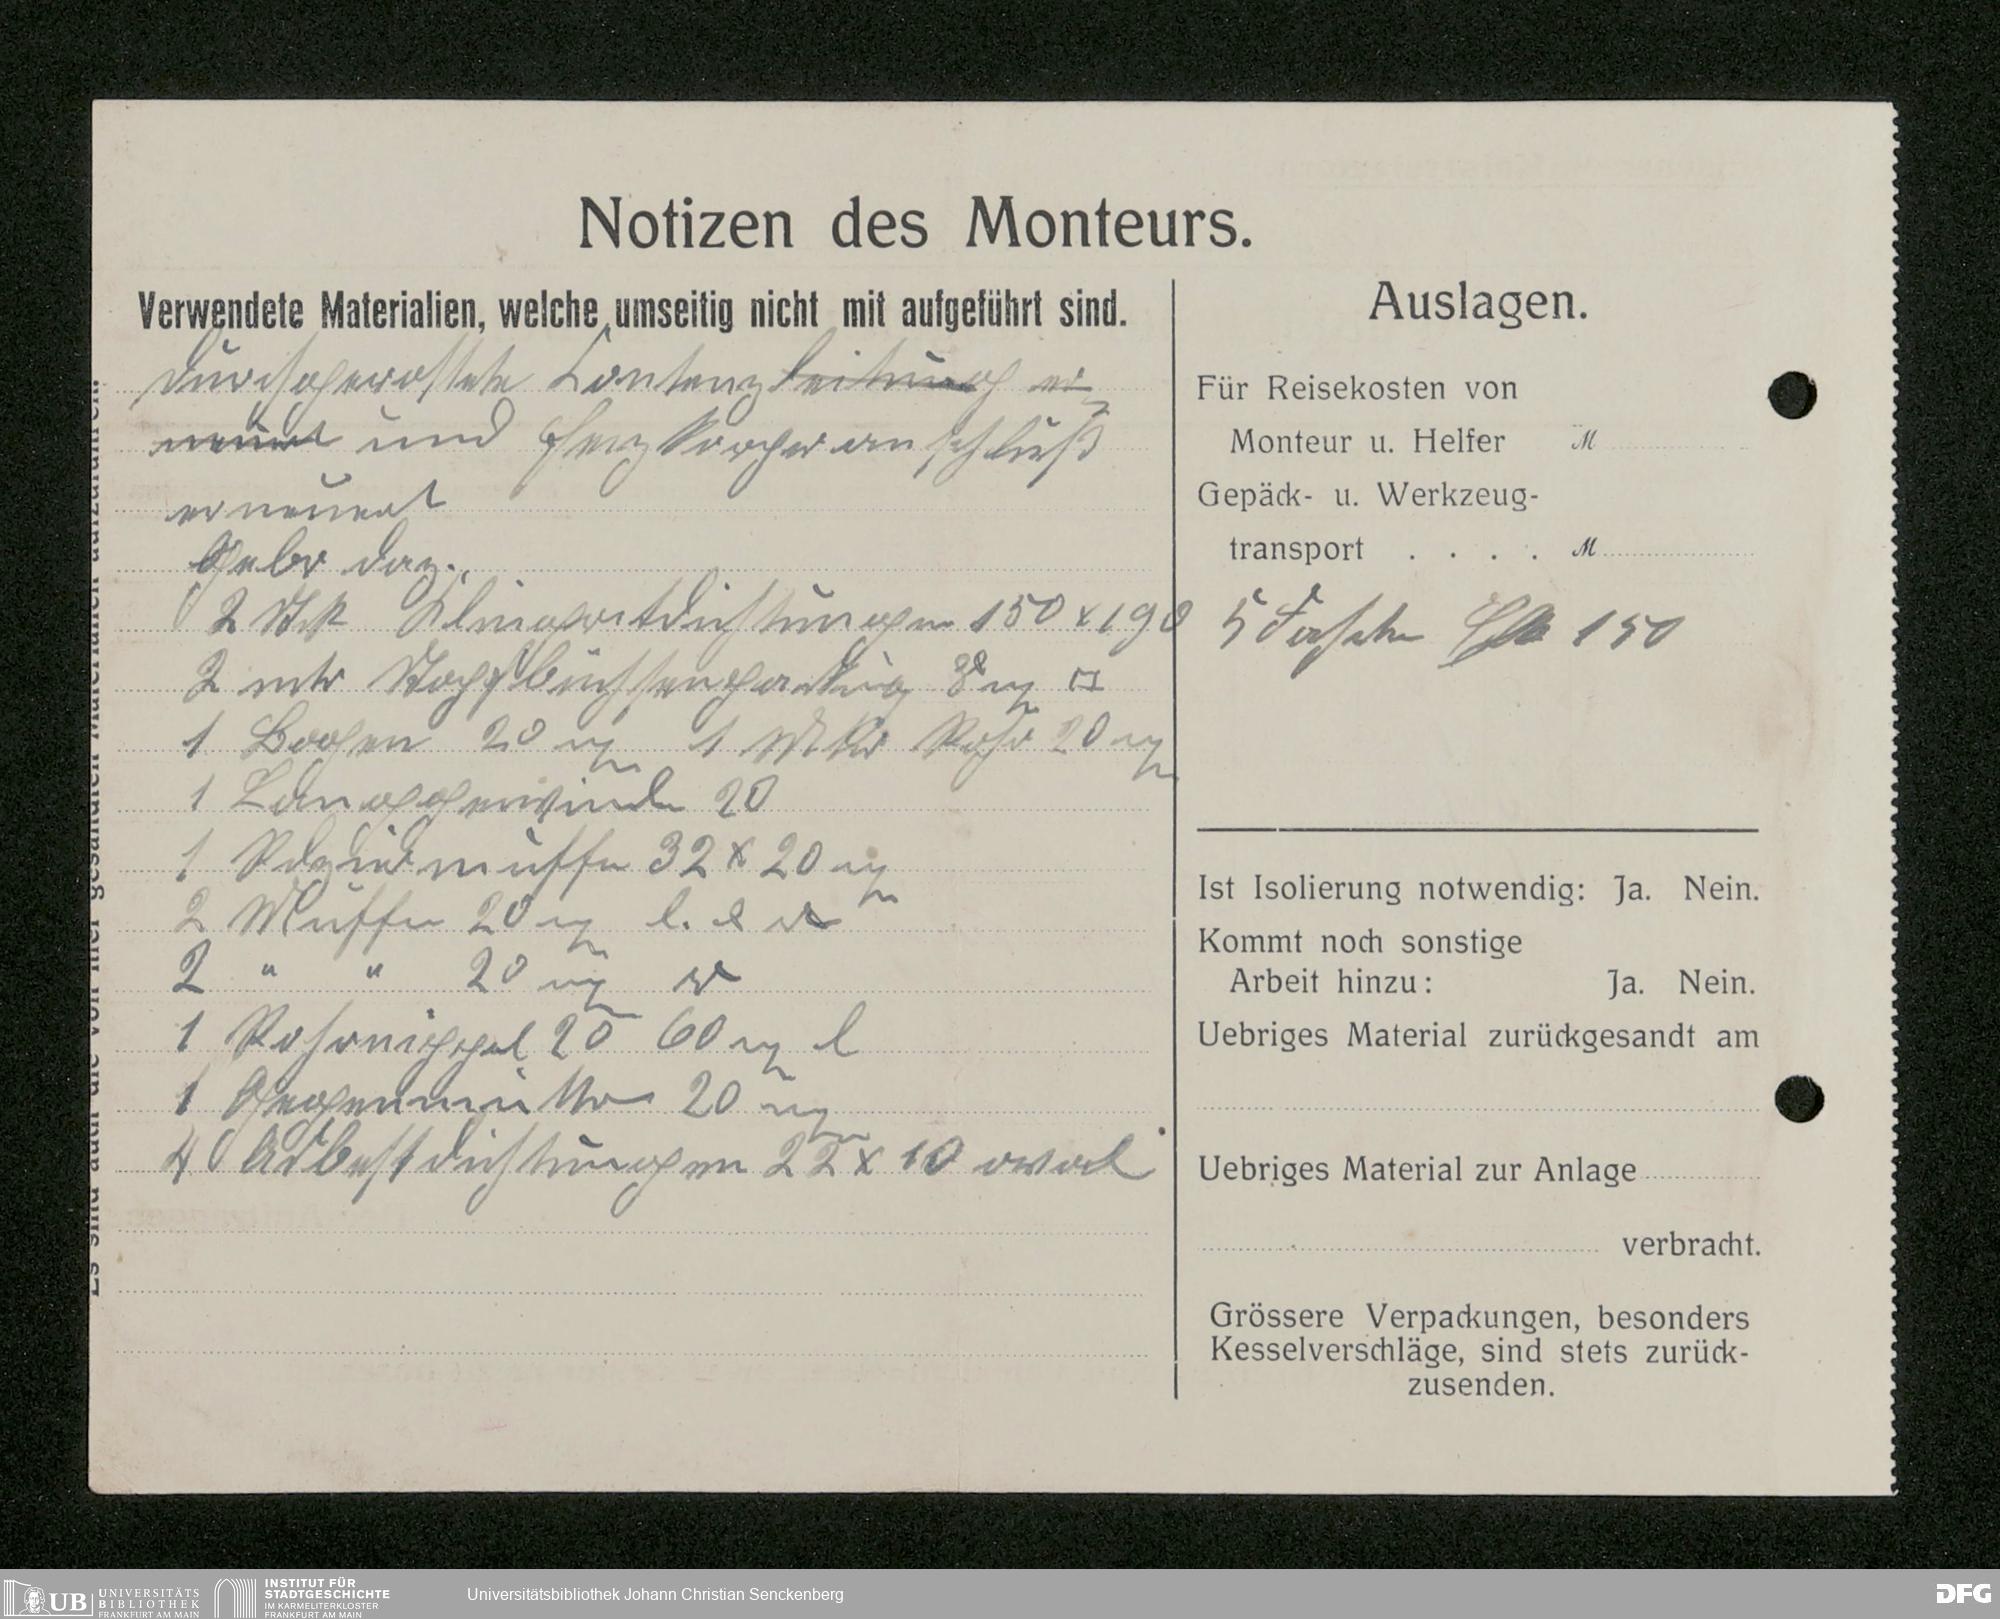 Notizen des Monteurs.
Verwendete Materialien, welche umseitig nicht mit aufgeführt sind.
durchgerostete Kontenzleitung er-
neuert und Heizkörperanschluß
erneuert
Gebr daz.
2 Stk Klingeritdichtungen 150 x 190
2 mtr Stopfbüchsenpackung 8 m
1 Bogen 20 m 1 Mtr Rohr 20 m
1 Langgewinde 20
1 Reduzirmuffe 32 x 20 m
2 Muffen 20 m l. & r
2 " " 20 m r
1 Rohrnippel 20 60 m l
1 Gegenmutter 20 m
4 Asbestdichtungen 22 x 10 oval
Auslagen.
Für Reisekosten von
Monteur u. Helfer M
Gepäck- u. Werkzeug-
transport . . . . M
5 Fahrten 150
Ist Isolierung notwendig: Ja. Nein.
Kommt noch sonstige
Arbeit hinzu: Ja. Nein.
Uebriges Material zurückgesandt am
Uebriges Material zur Anlage
verbracht.
Grössere Verpackungen, besonders
Kesselverschläge, sind stets zurück-
zusenden.
Es sind auch die von hier gesandten Materialien aufzuführen.
UB UNIVERSITÄTS
BIBLIOTHEK
FRANKFURT AM MAIN
INSTITUT FÜR
STADTGESCHICHTE
IM KARMELITERKLOSTER
FRANKFURT AM MAIN
Universitätsbibliothek Johann Christian Senckenberg
DFG